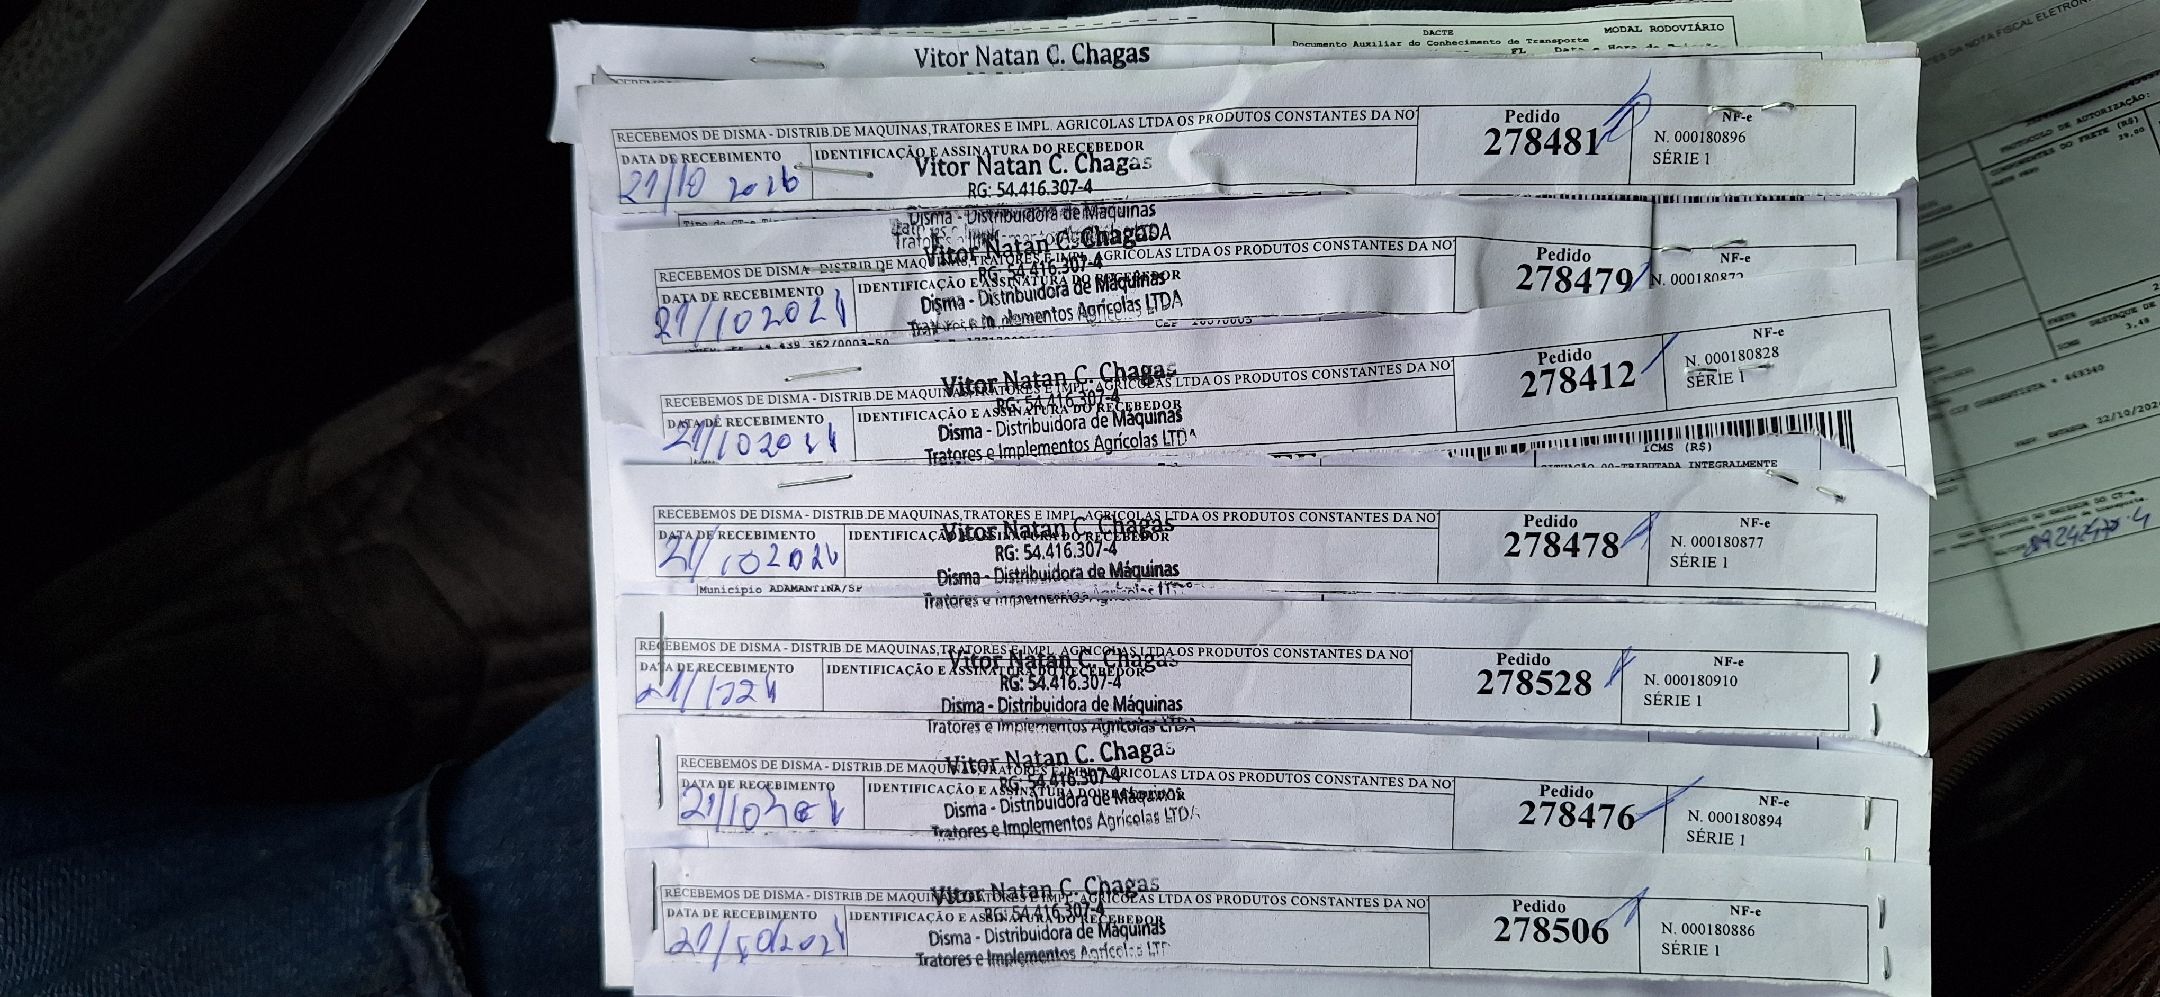 DACTE
MODAL RODOVIÁRIO
Documento Auxiliar do Conhecimento de Transporte
FL
Vitor Natan C. Chagas
RECEBEMOS DE DISMA - DISTRIB.DE MAQUINAS,TRATORES E IMPL. AGRICOLAS LTDA OS PRODUTOS CONSTANTES DA NO
Pedido
278481
NF-e
N. 000180896
SÉRIE 1
DATA DE RECEBIMENTO
IDENTIFICAÇÃO E ASSINATURA DO RECEBEDOR
21/10
Vitor Natan C. Chagas
RG: 54.416.307-4
Disma - Distribuidora de Máquinas
RECEBEMOS DE DISMA - DISTRIB.DE MAQUINAS,TRATORES E IMPL. AGRICOLAS LTDA OS PRODUTOS CONSTANTES DA NO
Pedido
278479
NF-e
DATA DE RECEBIMENTO
IDENTIFICAÇÃO E ASSINATURA DO RECEBEDOR
21/10 2021
Vitor Natan C. Chagas
RG: 54.416.307-4
Disma - Distribuidora de Máquinas
Tratores e Implementos Agrícolas LTDA
RECEBEMOS DE DISMA - DISTRIB.DE MAQUINAS,TRATORES E IMPL. AGRICOLAS LTDA OS PRODUTOS CONSTANTES DA NO
Pedido
278412
NF-e
N. 000180828
SÉRIE 1
DATA DE RECEBIMENTO
IDENTIFICAÇÃO E ASSINATURA DO RECEBEDOR
21/10 2021
Vitor Natan C. Chagas
RG: 54.416.307-4
Disma - Distribuidora de Máquinas
Tratores e Implementos Agrícolas LTDA
ICMS (R$)
TRIBUTADA INTEGRALMENTE
RECEBEMOS DE DISMA - DISTRIB.DE MAQUINAS,TRATORES E IMPL. AGRICOLAS LTDA OS PRODUTOS CONSTANTES DA NO
Pedido
278478
NF-e
N. 000180877
SÉRIE 1
DATA DE RECEBIMENTO
IDENTIFICAÇÃO E ASSINATURA DO RECEBEDOR
21/10 2021
Vitor Natan C. Chagas
RG: 54.416.307-4
Disma - Distribuidora de Máquinas
Município ADAMANTINA/SP
Tratores e Implementos
RECEBEMOS DE DISMA - DISTRIB.DE MAQUINAS,TRATORES E IMPL. AGRICOLAS LTDA OS PRODUTOS CONSTANTES DA NO
Pedido
278528
NF-e
N. 000180910
SÉRIE 1
DATA DE RECEBIMENTO
IDENTIFICAÇÃO E ASSINATURA DO RECEBEDOR
Vitor Natan C. Chagas
RG: 54.416.307-4
Disma - Distribuidora de Máquinas
Tratores e Implementos Agrícolas LTDA
RECEBEMOS DE DISMA - DISTRIB.DE MAQUINAS,TRATORES E IMPL. AGRICOLAS LTDA OS PRODUTOS CONSTANTES DA NO
Pedido
278476
NF-e
N. 000180894
SÉRIE 1
DATA DE RECEBIMENTO
IDENTIFICAÇÃO E ASSINATURA DO RECEBEDOR
Vitor Natan C. Chagas
RG: 54.416.307-4
Disma - Distribuidora de Máquinas
Tratores e Implementos Agrícolas LTDA
RECEBEMOS DE DISMA - DISTRIB.DE MAQUINAS,TRATORES E IMPL. AGRICOLAS LTDA OS PRODUTOS CONSTANTES DA NO
Pedido
278506
NF-e
N. 000180886
SÉRIE 1
DATA DE RECEBIMENTO
IDENTIFICAÇÃO E ASSINATURA DO RECEBEDOR
21/10/2021
Vitor Natan C. Chagas
RG: 54.416.307-4
Disma - Distribuidora de Máquinas
Tratores e Implementos Agrícolas LTD
DA NOTA FISCAL
PROTOCOLO DE AUTORIZAÇÃO:
COMPONENTES DO FRETE (R$)